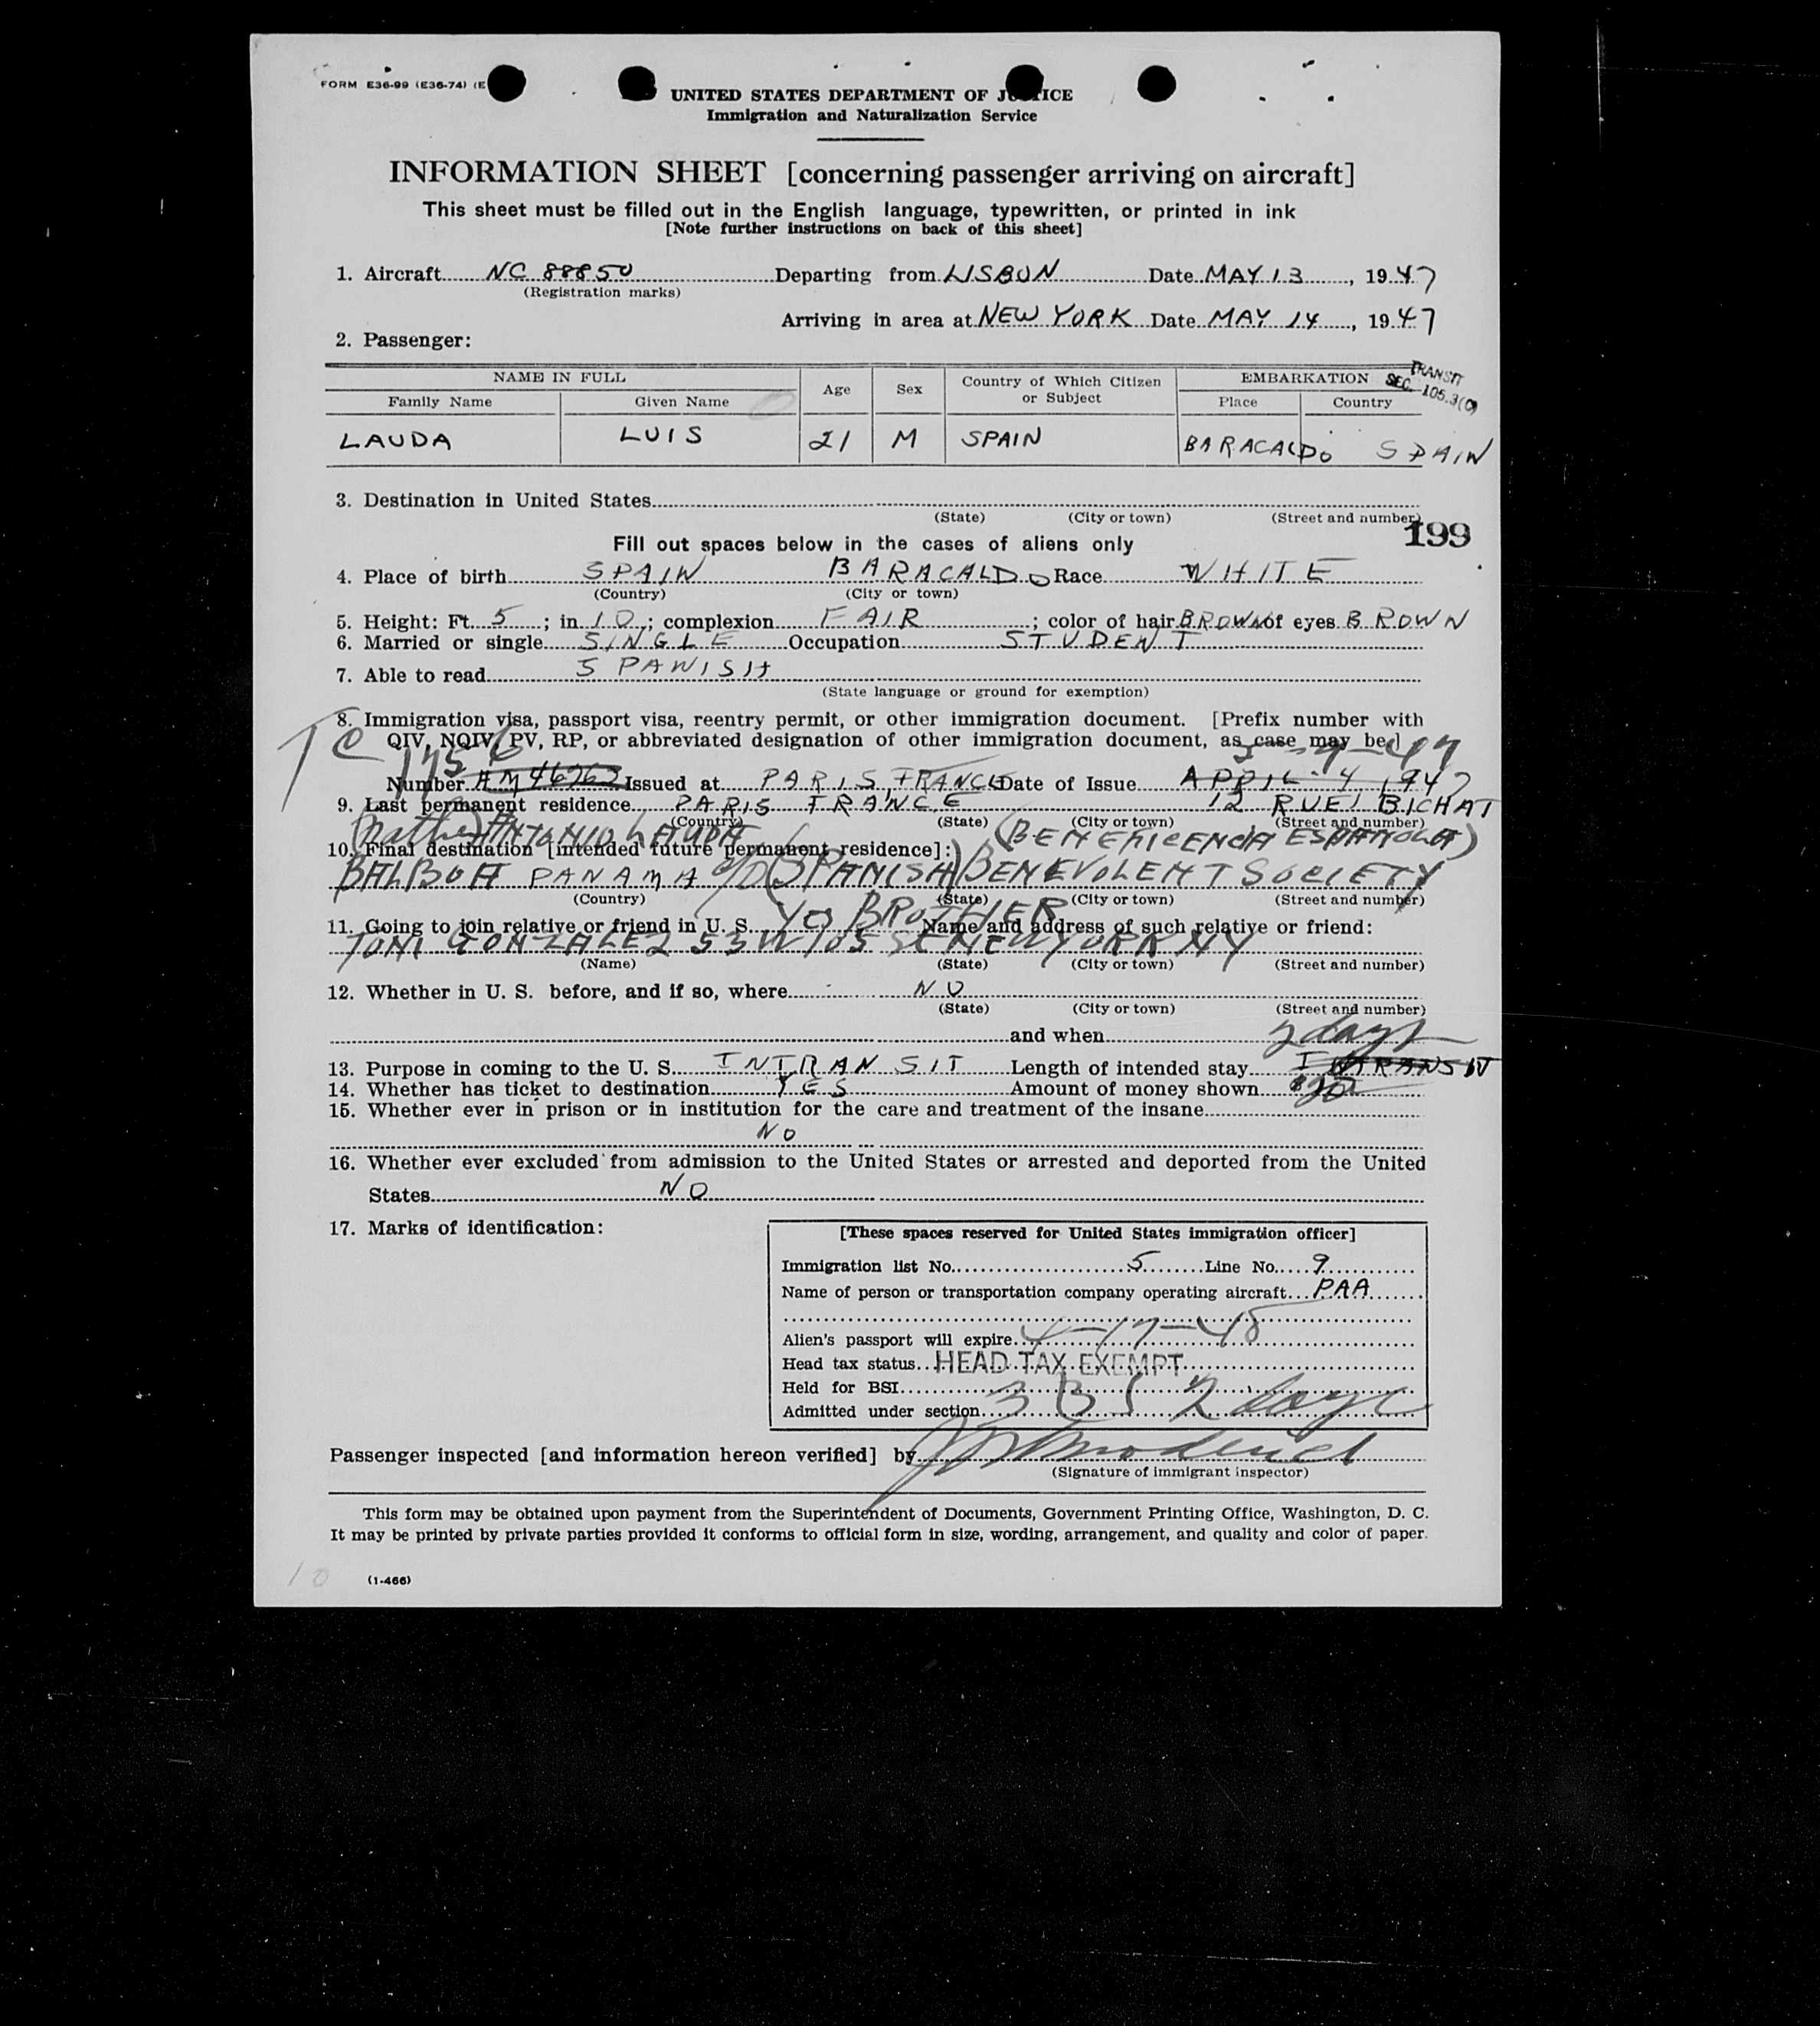 FORM E36-99 (E36-74) (E
UNITED STATES DEPARTMENT OF JUSTICE
Immigration and Naturalization Service
INFORMATION SHEET [concerning passenger arriving on aircraft]
This sheet must be filled out in the English language, typewritten, or printed in ink
[Note further instructions on back of this sheet]
1. Aircraft NC 88850 Departing from LISBON Date MAY 13, 1947
(Registration marks)
Arriving in area at NEW YORK Date MAY 14, 1947
2. Passenger:
TRANSIT
SEC. 105.3(C)
NAME IN FULL Age Sex Country of Which Citizen or Subject EMBARKATION
Family Name Given Name Place Country
LAUDA LUIS 21 M SPAIN BARACALDO SPAIN
3. Destination in United States
(State) (City or town) (Street and number)
199
Fill out spaces below in the cases of aliens only
4. Place of birth SPAIN BARACALDO Race WHITE
(Country) (City or town)
5. Height: Ft. 5; in 10; complexion FAIR; color of hair BROWN of eyes BROWN
6. Married or single SINGLE Occupation STUDENT
7. Able to read SPANISH
(State language or ground for exemption)
8. Immigration visa, passport visa, reentry permit, or other immigration document. [Prefix number with
QIV, NQIV, PV, RP, or abbreviated designation of other immigration document, as case may be.]
TC 1756 5-9-47
Number AM 46262 Issued at PARIS, FRANCE Date of Issue APRIL-4 1947
9. Last permanent residence PARIS FRANCE 12 RUE BICHAT
(Country) (State) (City or town) (Street and number)
ANTONIO LAUDA (BENEFICENCIA ESPAÑOLA)
10. Final destination [intended future permanent residence]:
BALBOA PANAMA c/o (SPANISH) BENEVOLENT SOCIETY
(Country) (State) (City or town) (Street and number)
11. Going to join relative or friend in U. S. BROTHER Name and address of such relative or friend:
TONI GONZALEZ 53 W 105 ST NEW YORK NY
(Name) (State) (City or town) (Street and number)
12. Whether in U. S. before, and if so, where NO
(State) (City or town) (Street and number)
and when
2 days
13. Purpose in coming to the U. S. INTRANSIT Length of intended stay INTRANSIT
14. Whether has ticket to destination YES Amount of money shown $20
15. Whether ever in prison or in institution for the care and treatment of the insane
NO
16. Whether ever excluded from admission to the United States or arrested and deported from the United
States NO
17. Marks of identification:
[These spaces reserved for United States immigration officer]
Immigration list No. 5 Line No. 9
Name of person or transportation company operating aircraft PAA
Alien's passport will expire 4-17-48
Head tax status HEAD TAX EXEMPT
Held for BSI
Admitted under section 3 (3) 2 days
Passenger inspected [and information hereon verified] by
(Signature of immigrant inspector)
This form may be obtained upon payment from the Superintendent of Documents, Government Printing Office, Washington, D. C.
It may be printed by private parties provided it conforms to official form in size, wording, arrangement, and quality and color of paper.
10
(1-466)